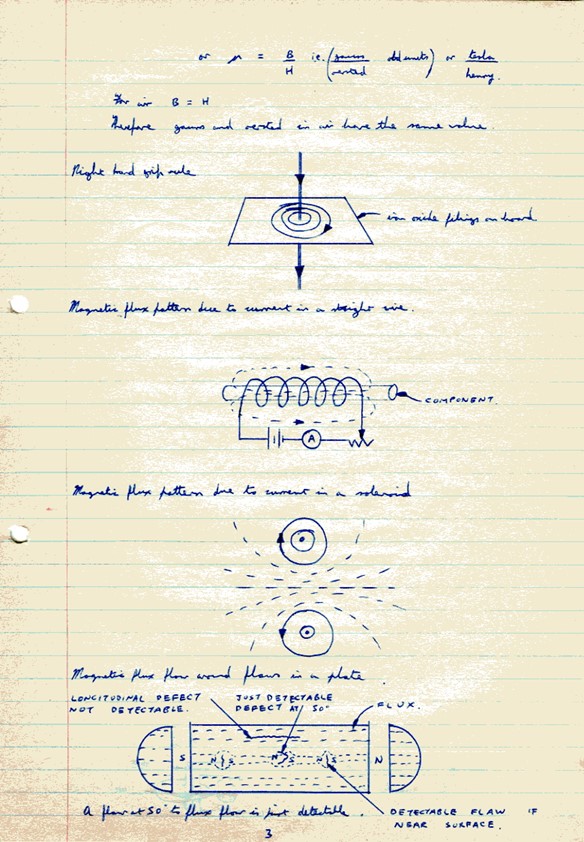 or μ = B/H i.e. (gauss/oersted old units) or tesla/henry.
For air B = H
Therefore gauss and oersted in air have the same value.
Right hand grip rule
iron oxide filings on board
Magnetic flux pattern due to current in a straight wire.
COMPONENT.
A
Magnetic flux pattern due to current in a solenoid
Magnetic flux flow around flaws in a plate.
LONGITUDINAL DEFECT
NOT DETECTABLE.
JUST DETECTABLE
DEFECT AT 50°
FLUX.
S N S N S N S N
A flaw at 50° to flux flow is just detectable.
DETECTABLE FLAW IF
NEAR SURFACE.
3